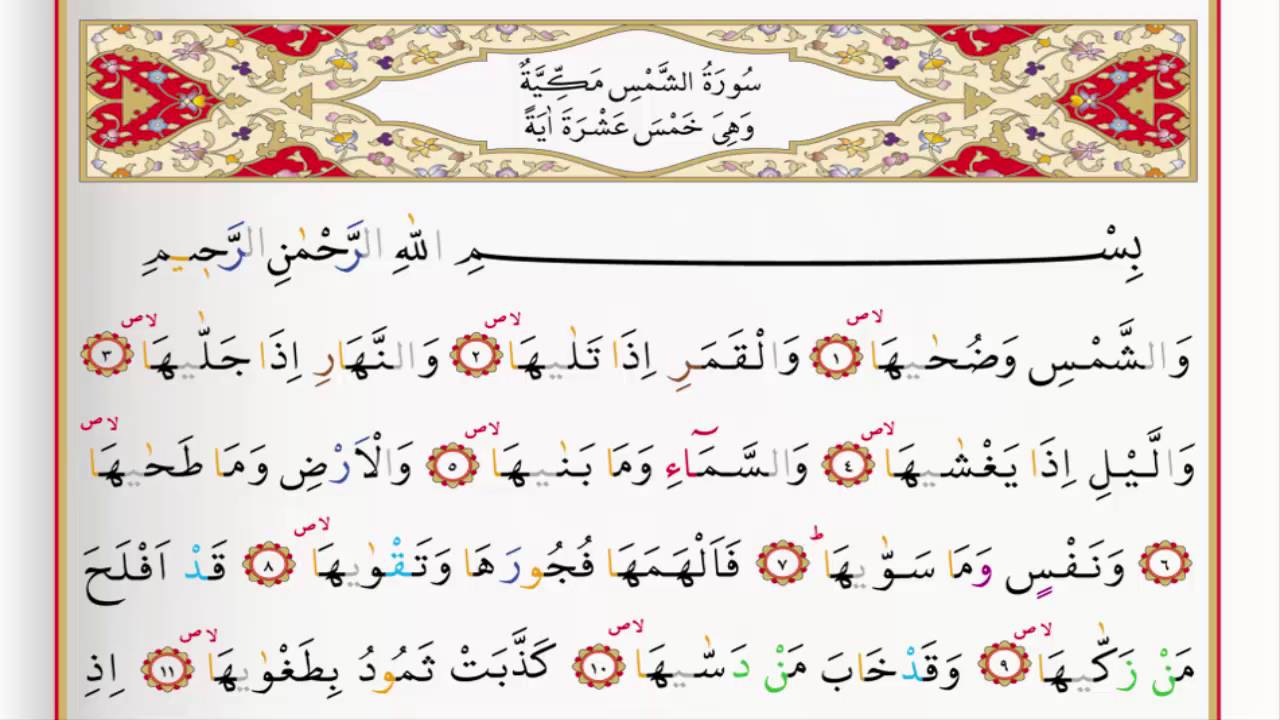 سُورَةُ الشَّمْسِ مَكِّيَّةٌ
وَهِىَ خَمْسَ عَشْرَةَ اٰيَةً
بِسْمِ اللّٰهِ الرَّحْمٰنِ الرَّحٖيمِ
وَالشَّمْسِ وَضُحٰيهَا لاص ١ وَالْقَمَرِ اِذَا تَلٰيهَا لاص ٢ وَالنَّهَارِ اِذَا جَلّٰيهَا لاص ٣
وَالَّيْلِ اِذَا يَغْشٰيهَا لاص ٤ وَالسَّمَٓاءِ وَمَا بَنٰيهَا لاص ٥ وَالْاَرْضِ وَمَا طَحٰيهَا لاص
٦ وَنَفْسٍ وَمَا سَوّٰيهَا ط ٧ فَاَلْهَمَهَا فُجُورَهَا وَتَقْوٰيهَا لاص ٨ قَدْ اَفْلَحَ
مَنْ زَكّٰيهَا لاص ٩ وَقَدْ خَابَ مَنْ دَسّٰيهَا لاص ١٠ كَذَّبَتْ ثَمُودُ بِطَغْوٰيهَا لاص ١١ اِذِ